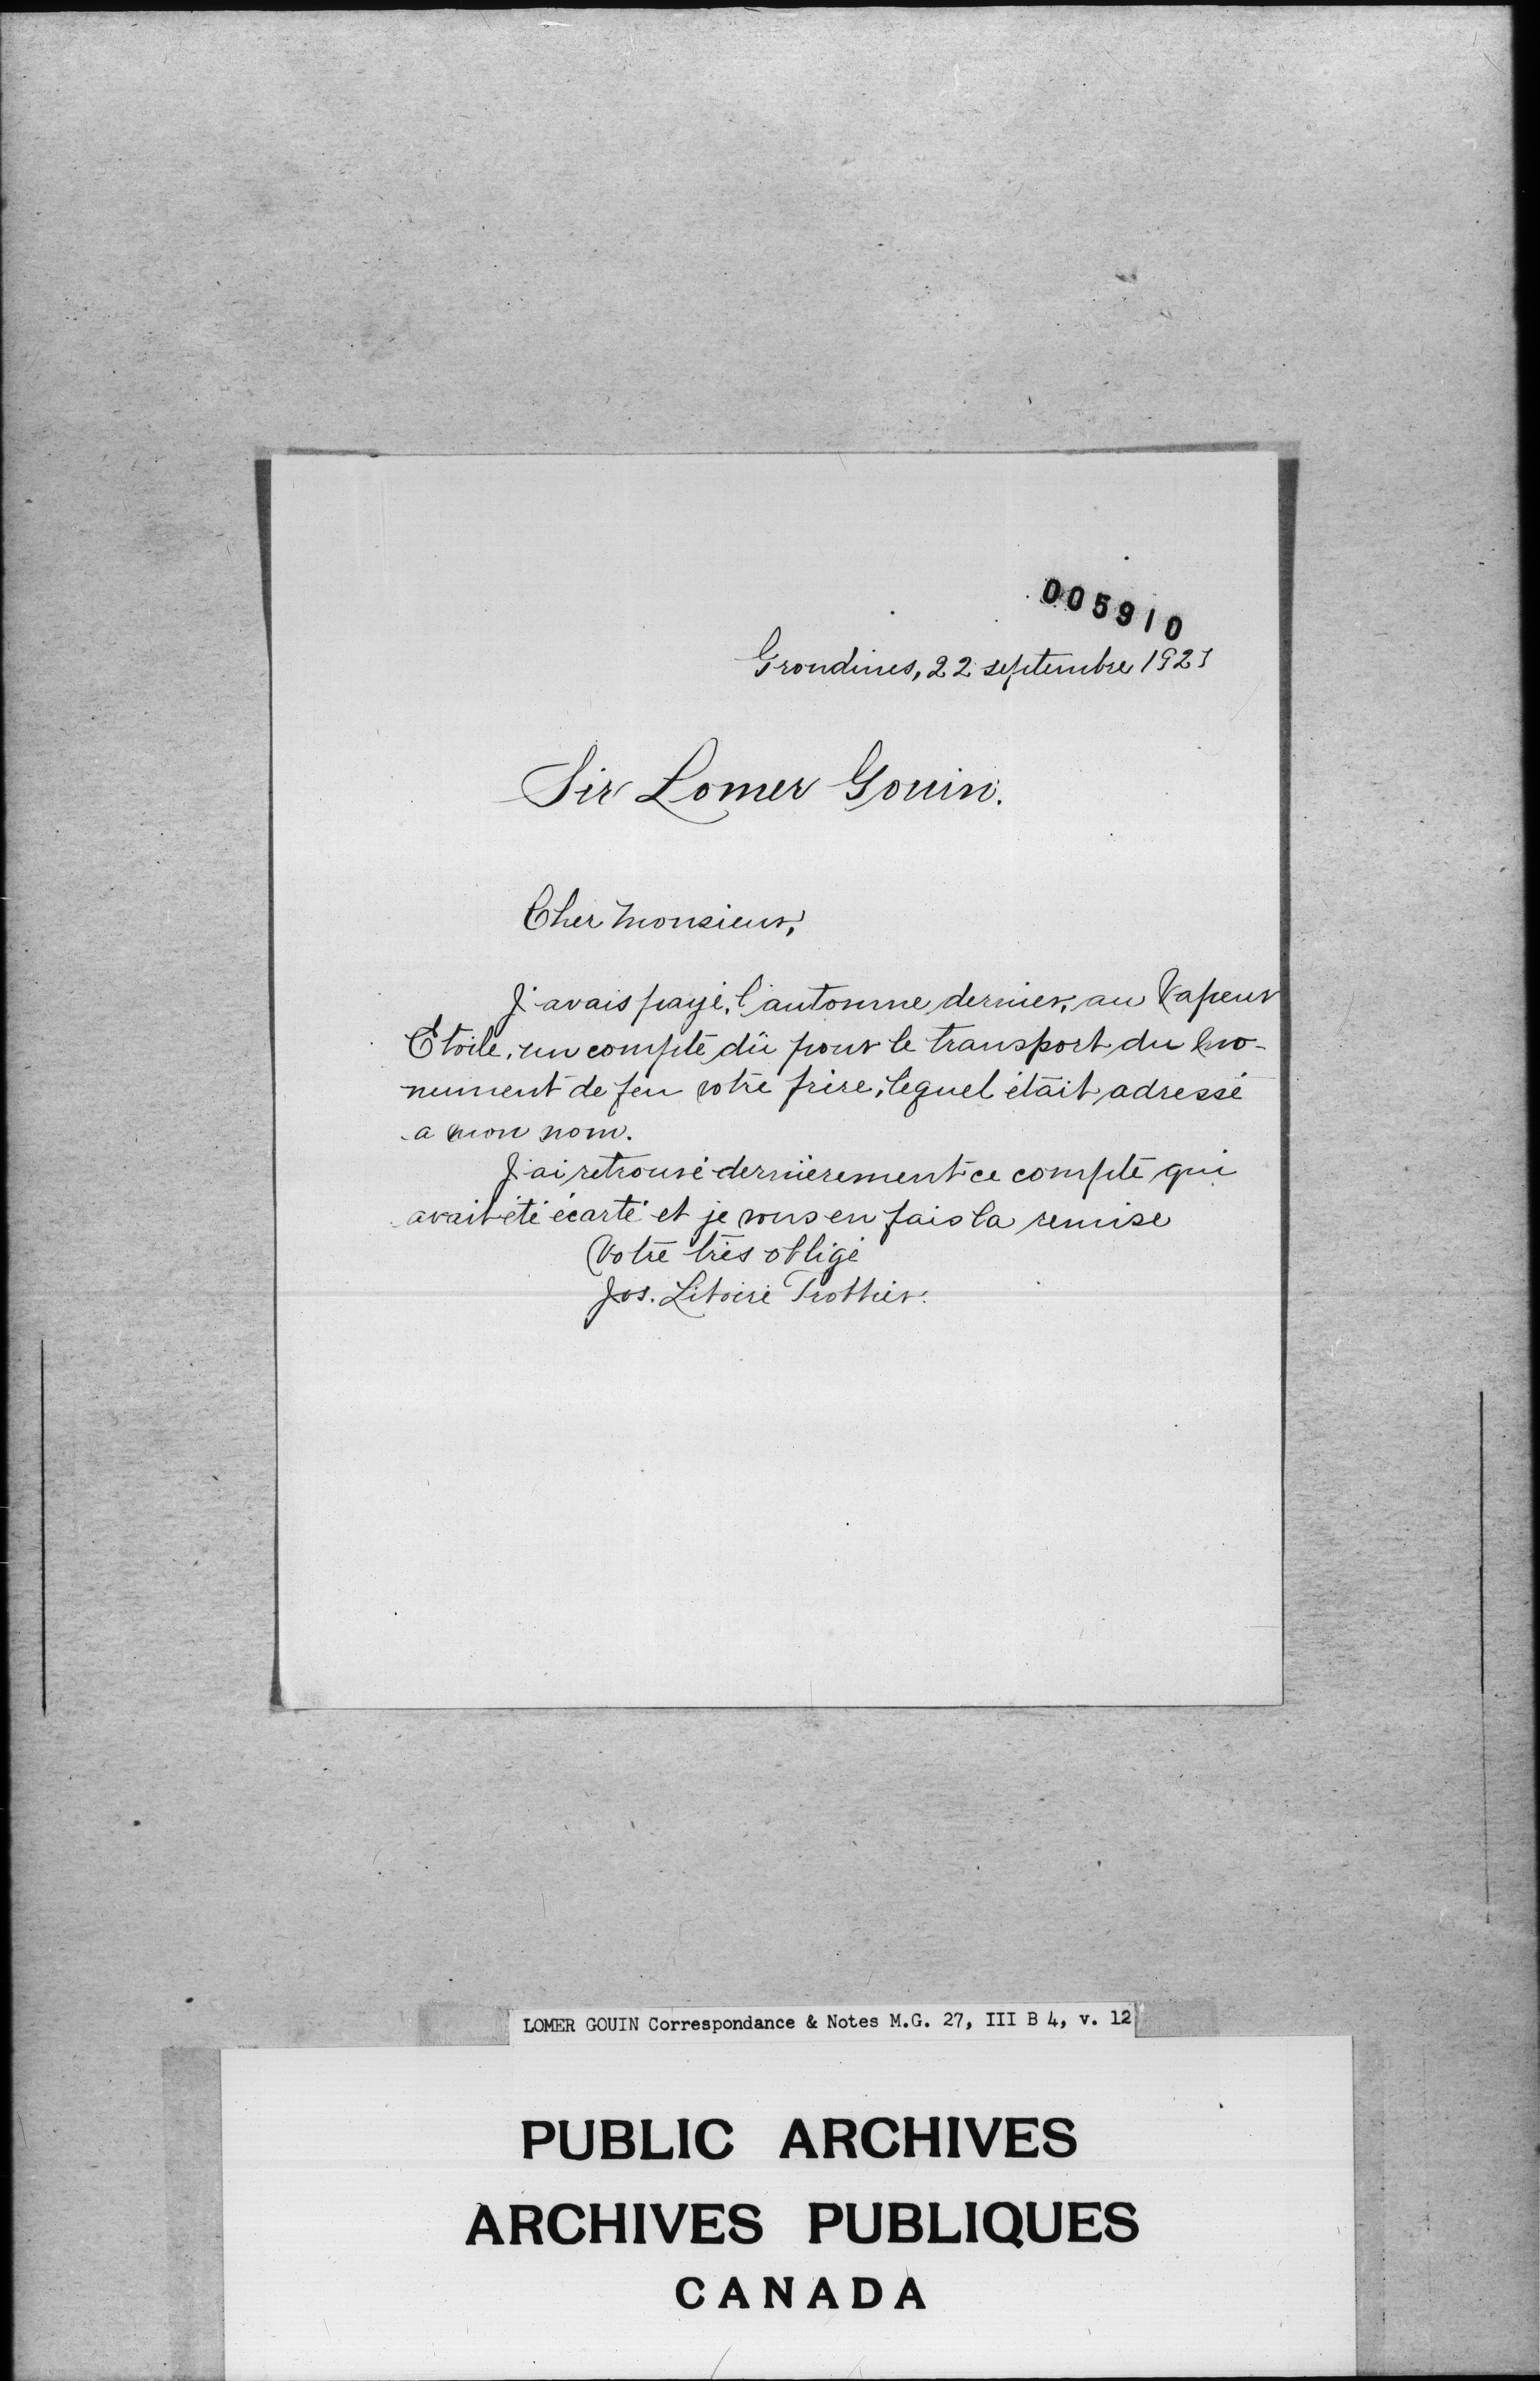 005910
Grondines, 22 septembre 1921
Sir Lomer Gouin.
Cher Monsieur,
J'avais payé, l'automne dernier, au Vapeur
Etoile, un compte dû pour le transport du mo-
nument de feu votre frère, lequel était adressé
a mon nom.
J'ai retrouvé dernièrement ce compte qui
avait été écarté et je vous en fais la remise
Votre très obligé
Jos. Liboire Trottier.
LOMER GOUIN Correspondance & Notes M.G. 27, III B 4, v. 12
PUBLIC ARCHIVES
ARCHIVES PUBLIQUES
CANADA